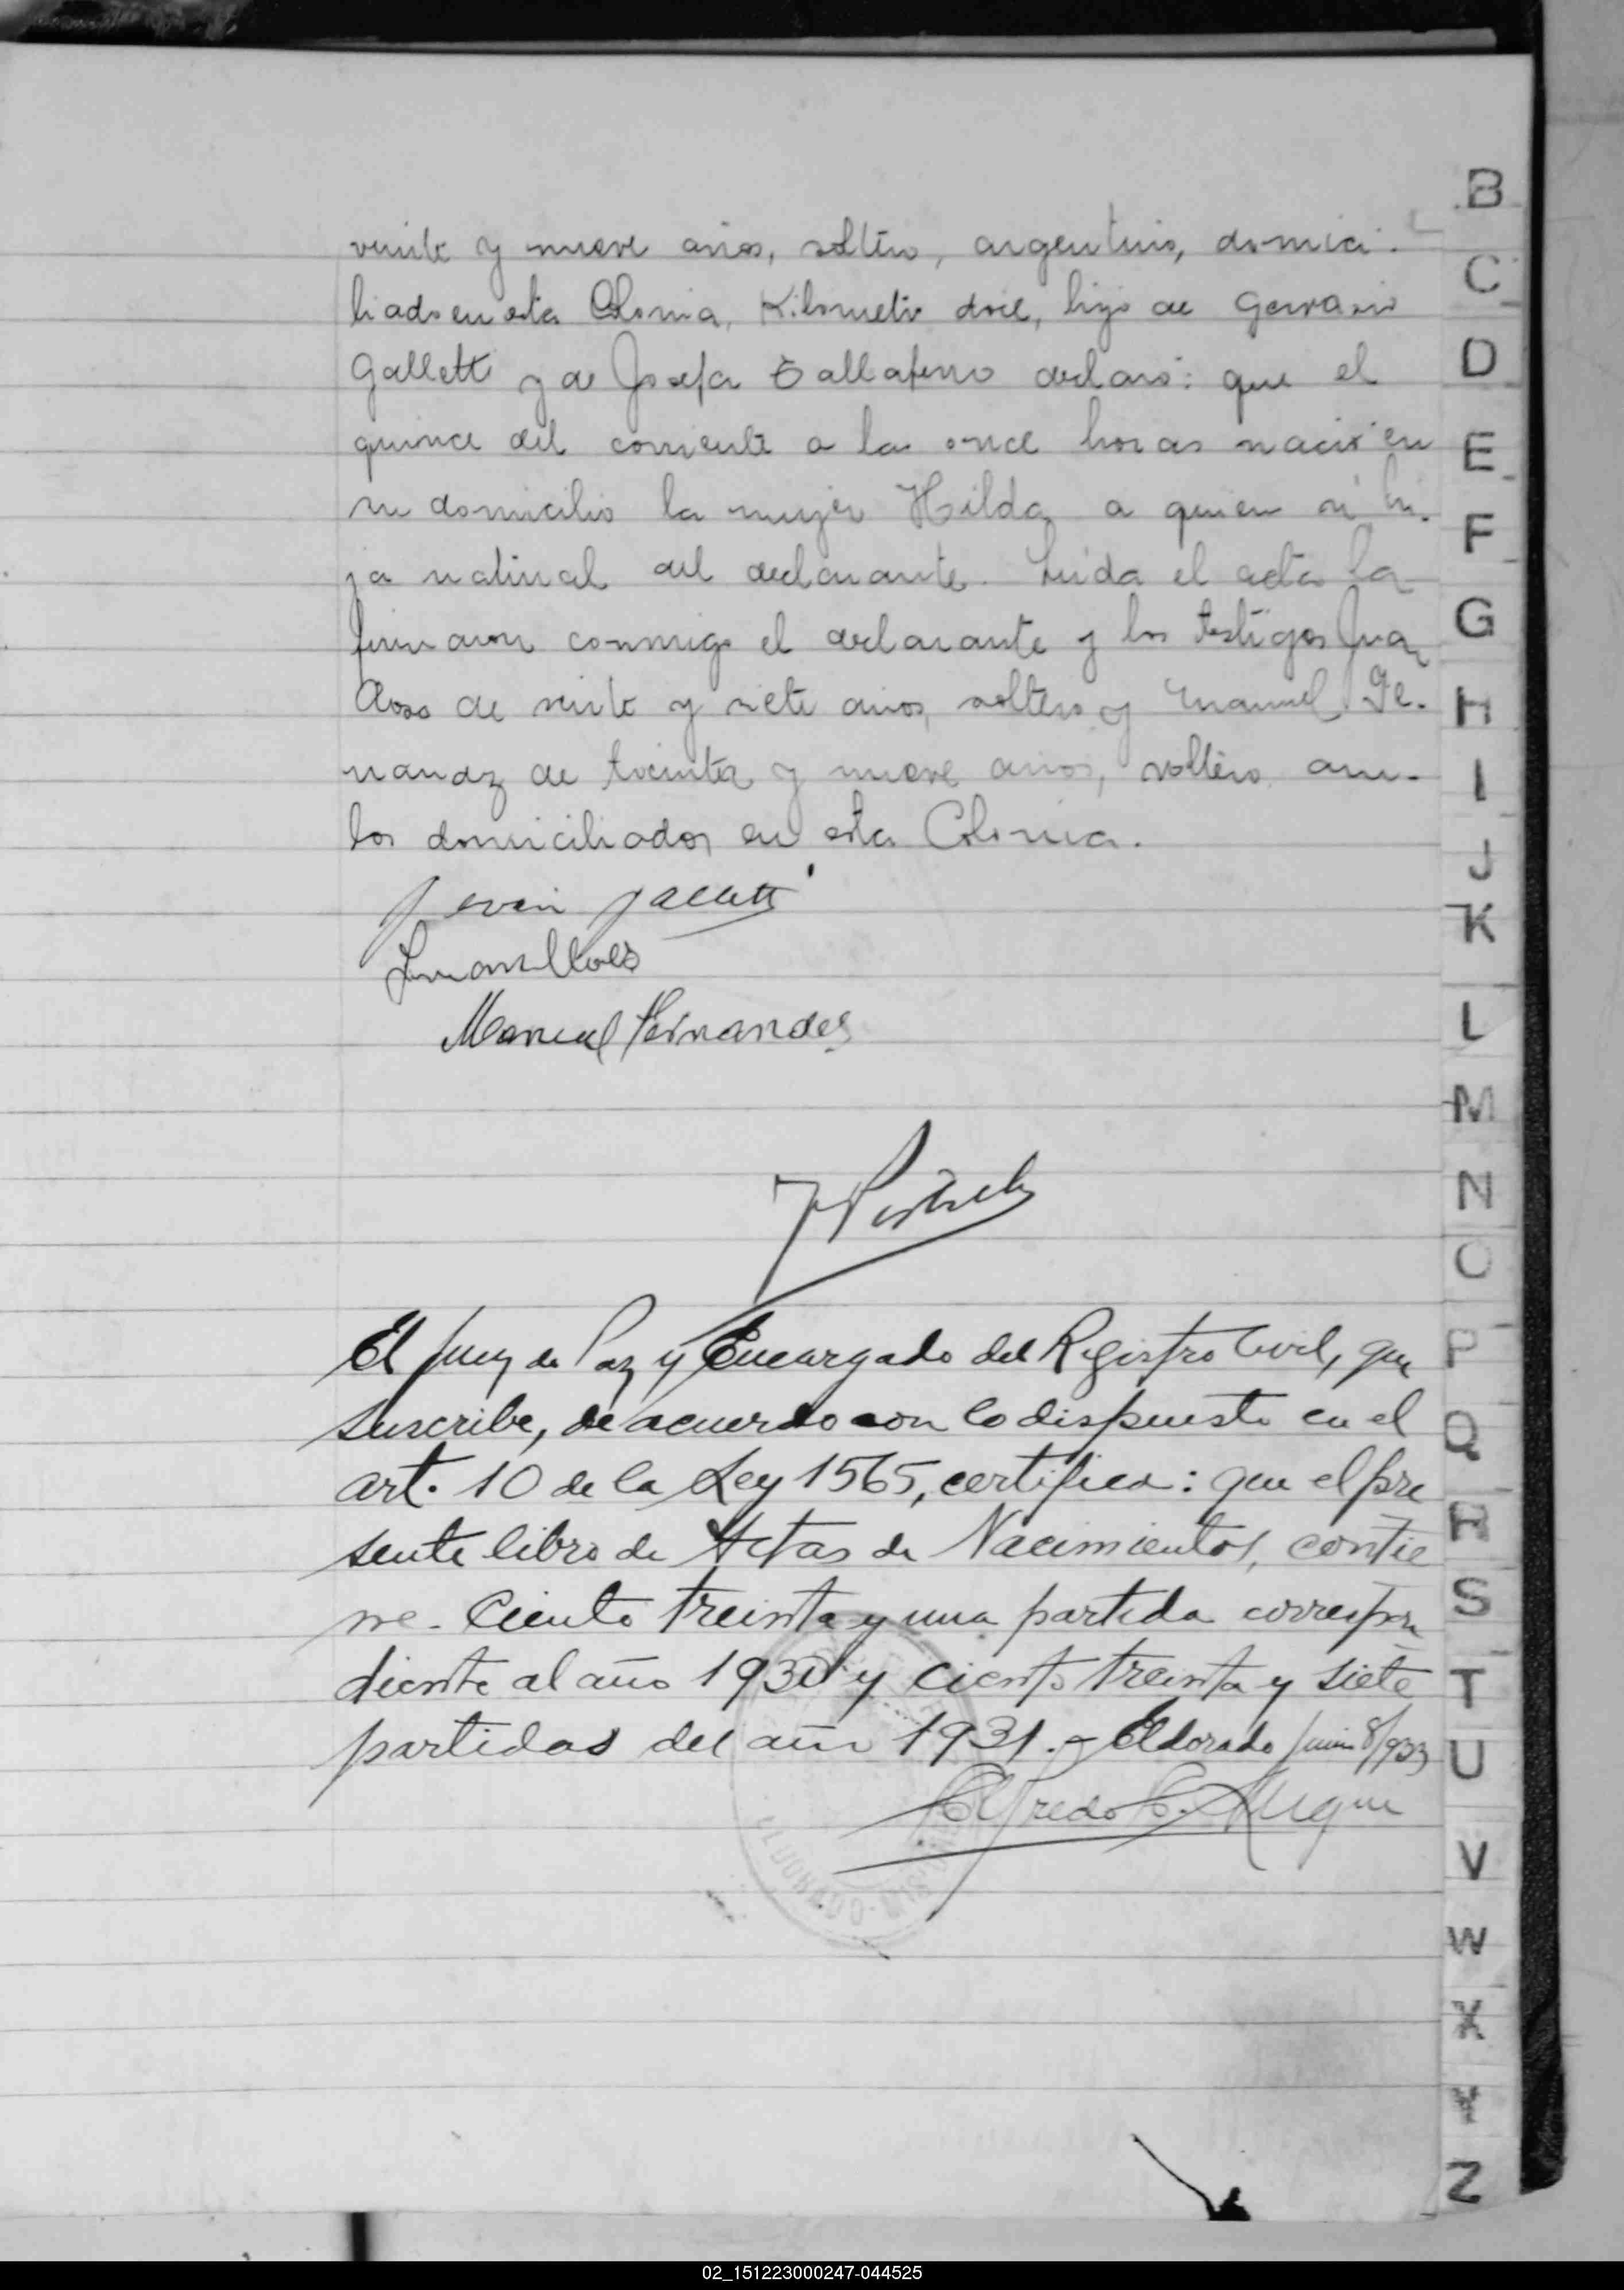 veinte y nueve años, soltero, argentino, domici-
liado en esta Colonia, Kilometro doce, hijo de Gervasio
Galletti y de Josefa declaró: que el
quince del corriente a las once horas nació en
su domicilio la mujer Hilda a quien hi-
ja natural del declarante. Leída el acta la
firmaron conmigo el declarante y los testigos Juan
de veinte y siete años, soltero y Manuel Fe-
nandz de treinta y nueve años, soltero am-
bos domiciliados en esta Colonia.
Manuel Fernandes
El Juez de Paz y Encargado del Registro Civil, que
suscribe, de acuerdo con lo dispuesto en el
art. 10 de la Ley 1565, certifica: que el pre
sente libro de Actas de Nacimientos, contie
ne. Ciento treinta y una partida correspon
diente al año 1930 y ciento treinta y siete
partidas del año 1931. - Eldorado Junio 8/933
Alfredo
ELDORADO
B
C
D
E
F
G
H
I
J
K
L
M
N
O
P
Q
R
S
T
U
V
W
X
Y
Z
02_151223000247-044525